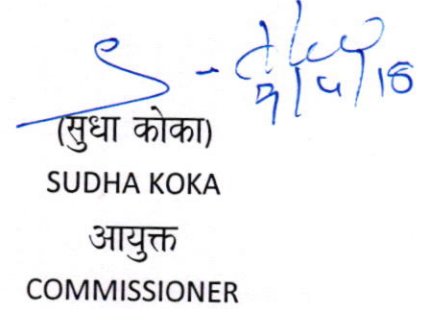 9/4/18
(सुधा कोका)
SUDHA KOKA
आयुक्त
COMMISSIONER